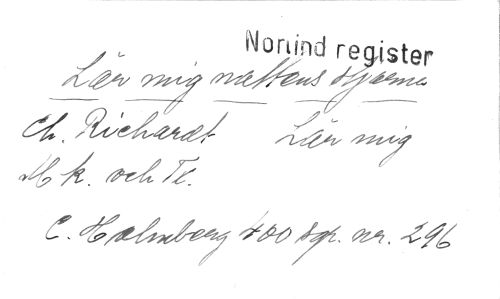 Norlind register
Lär mig nattens stjärna
Ch. Richardt Lär mig
M k. och Tr.
C. Holmberg 400 sgr. nr. 296